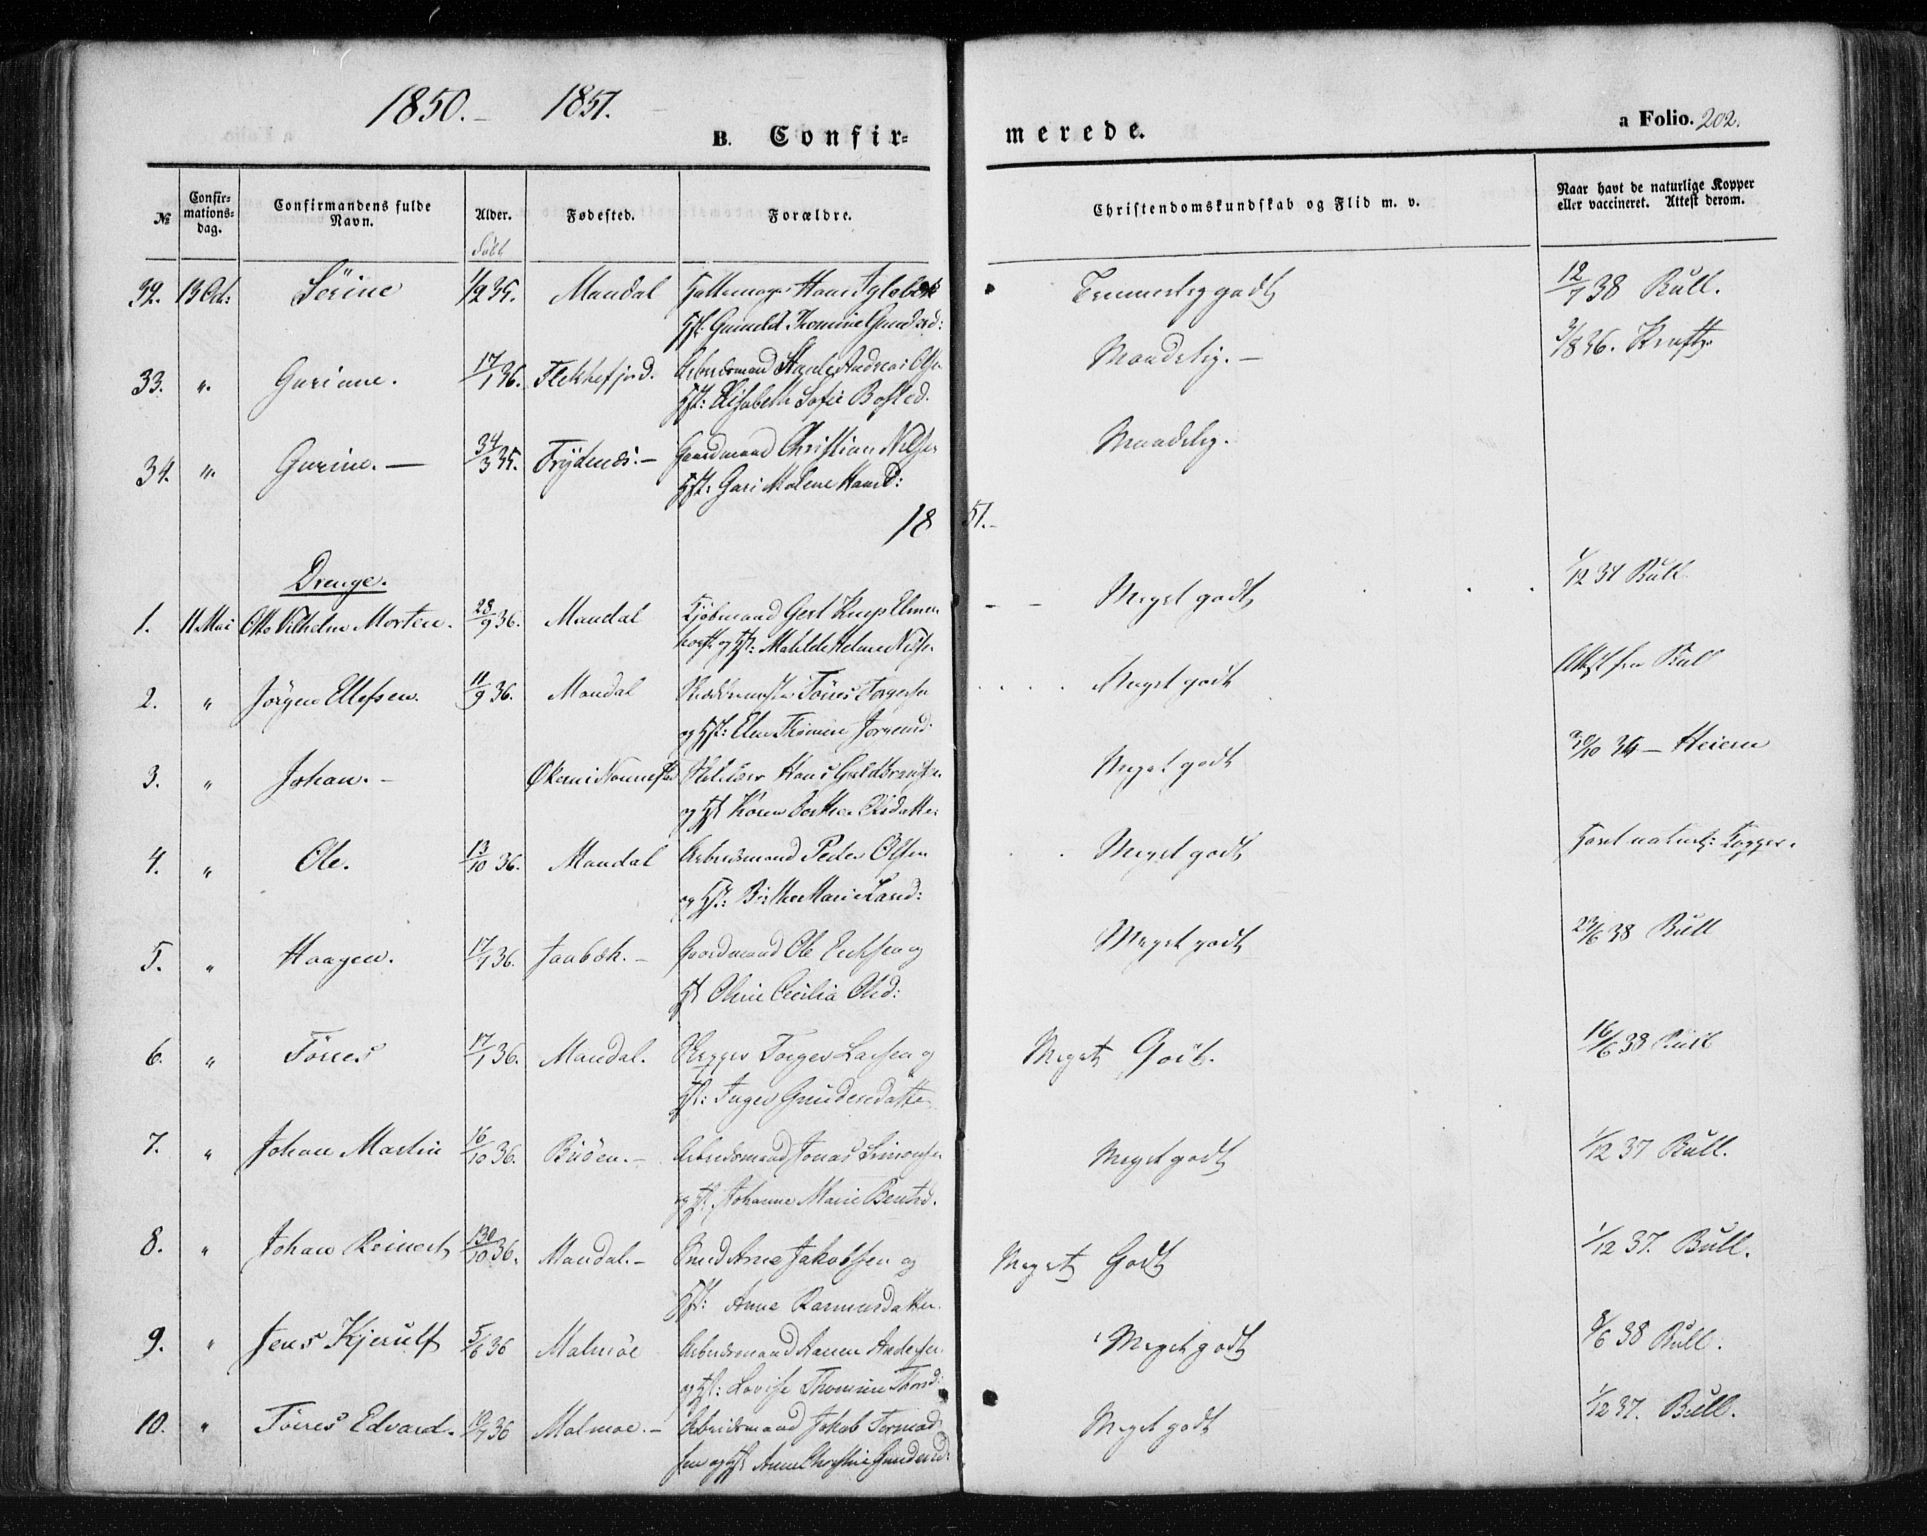 1850. - 1851.
B. Confir-
merede.
a Folio. 202.
№
Confir-
mations-
dag.
Confirmandens fulde
Navn.
Alder.
Født
Fødested.
Forældre.
Christendomskundskab og Flid m. v.
Naar havt de naturlige Kopper
eller vaccineret. Attest derom.
32. 13 Oct: Serine 1/9 35. Mandal Hans Iglebæk Temmelig godt 12/7 38 Bull.
Hst: Gunild Thomine Gundersd:
33. " Gurine. 17/1 36. Flekkefjord. Arbeidsmand Andreas Olsen Maadelig. - 3/8 36.
Hst: Elisabeth Sofie Bosted.
34. " Gurine. - 3/3 35. Frydenæs. - Gaardmand Christian Nilsen Maadelig.
Hst: Guri Malene Hansd:
1851. -
Drenge.
1. 11 Mai Otto Vilhelm Morten. 28/9 36. Mandal Kjøbmand Gert Elmen Meget godt 1/12 37 Bull
horst og Hst: Matilde Helene Nilsen
2. " Jörgen Ellefsen. 11/9 36. Mandal Tönnes Torgersen Meget godt Attest fra Bull
og Hst: Elen Thomine Jörgensd:
3. " Johan. - Hans Guldbransen Meget godt 30/10 36 - Heiern
og Hst Karen Dorthea Olsdatter
4. " Ole. 13/10 36. Mandal Arbeidsmand Peder Olsen Meget godt Havt naturl: Kopper.
og Hst: Birthe Marie Larsd:
5. " Haagen. 17/1 36. Jaabæk. - Gaardmand Ole Erichsen og Meget godt 23/6 38 Bull
Hst Oline Cecilia Olsd:
6. " Tönnes 17/1 36. Mandal. Skipper Torger Larsen og Meget Godt. 16/6 38 Bull
Hst: Inger Gundersdatter
7. " Johan Martin 16/10 36. Buöen. - Arbeidsmand Jonas Simonsen Meget godt 1/12 37 Bull.
og Hst Johanne Marie Bentsd.
8. " Johan Reinert 30/10 36. Mandal. - Smed Arne Jakobsen og Meget Godt 1/12 37. Bull.
Hst: Anne Rasmusdatter.
9. " Jens Kjerulf 5/6 36 Malmöe Arbeidsmand Andersen Meget godt 8/6 38 Bull.
og Hst: Lovise Thomine Thorsd:
10. " Tönnes Edvard. 19/7 36 Malmöe. - Arbeidsmand Jakob Tormod Meget godt 1/12 37. Bull.
sen og Hst Anne Christine Gundersd: